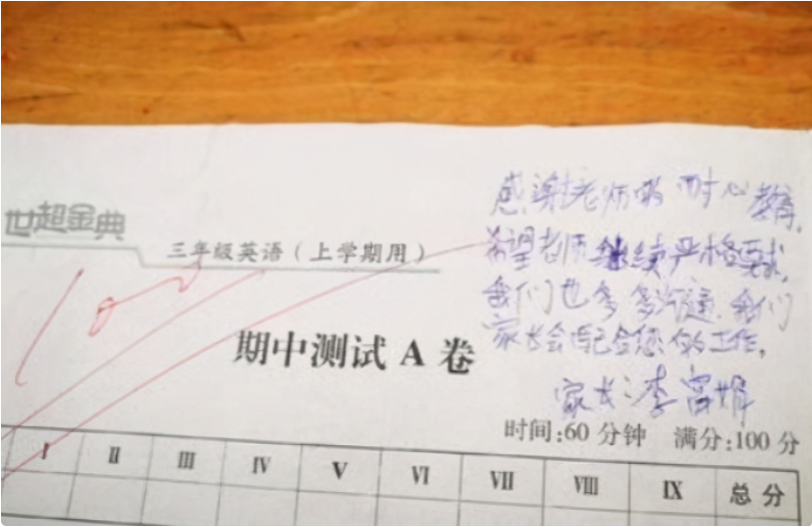 世超金典
三年级英语（上学期用）
100
期中测试 A 卷
感谢老师的耐心教育，
希望老师继续严格要求，
我们也多多沟通，我们
家长会配合您的工作，
家长：李富娟
时间：60 分钟 满分：100 分
I II III IV V VI VII VIII IX 总分